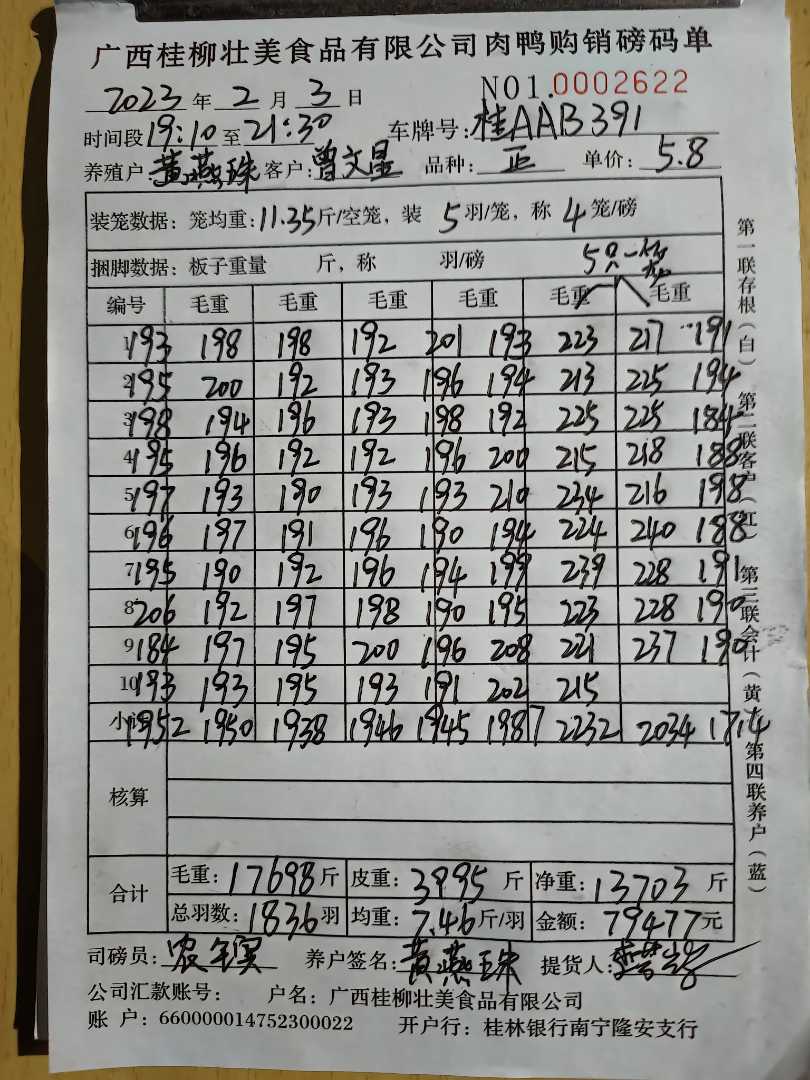 广西桂柳壮美食品有限公司肉鸭购销磅码单
2023 年 2 月 3 日 NO1.0002622
时间段 19:10 至 21:30 车牌号: 桂AAB391
养殖户: 黄燕珠 客户: 曾文星 品种: 正 单价: 5.8
装笼数据: 笼均重: 11.35 斤/空笼, 装 5 羽/笼, 称 4 笼/磅
捆脚数据: 板子重量 斤, 称 羽/磅 5只一
编号 毛重 毛重 毛重 毛重 毛重 毛重
1 193 198 198 192 201 193 223 217 191
2 195 200 192 193 196 194 213 225 194
3 198 194 196 193 198 192 225 225 184
4 195 196 192 192 196 200 215 218 188
5 197 193 190 193 193 210 234 216 198
6 196 197 191 196 190 194 224 240 188
7 195 190 192 196 194 199 239 228 191
8 206 192 197 198 190 195 223 228 190
9 184 197 195 200 196 208 221 237 190
10 193 193 195 193 191 202 215
小计 1952 1950 1938 1946 1945 1987 2232 2034 1714
核算
合计 毛重: 17698 斤 皮重: 3995 斤 净重: 13703 斤
总羽数: 1836 羽 均重: 7.46 斤/羽 金额: 79477 元
司磅员: 养户签名: 黄燕珠 提货人:
公司汇款账号: 户名: 广西桂柳壮美食品有限公司
账 户: 660000014752300022 开户行: 桂林银行南宁隆安支行
第一联存根(白) 第二联客户(红) 第三联会计(黄) 第四联养户(蓝)